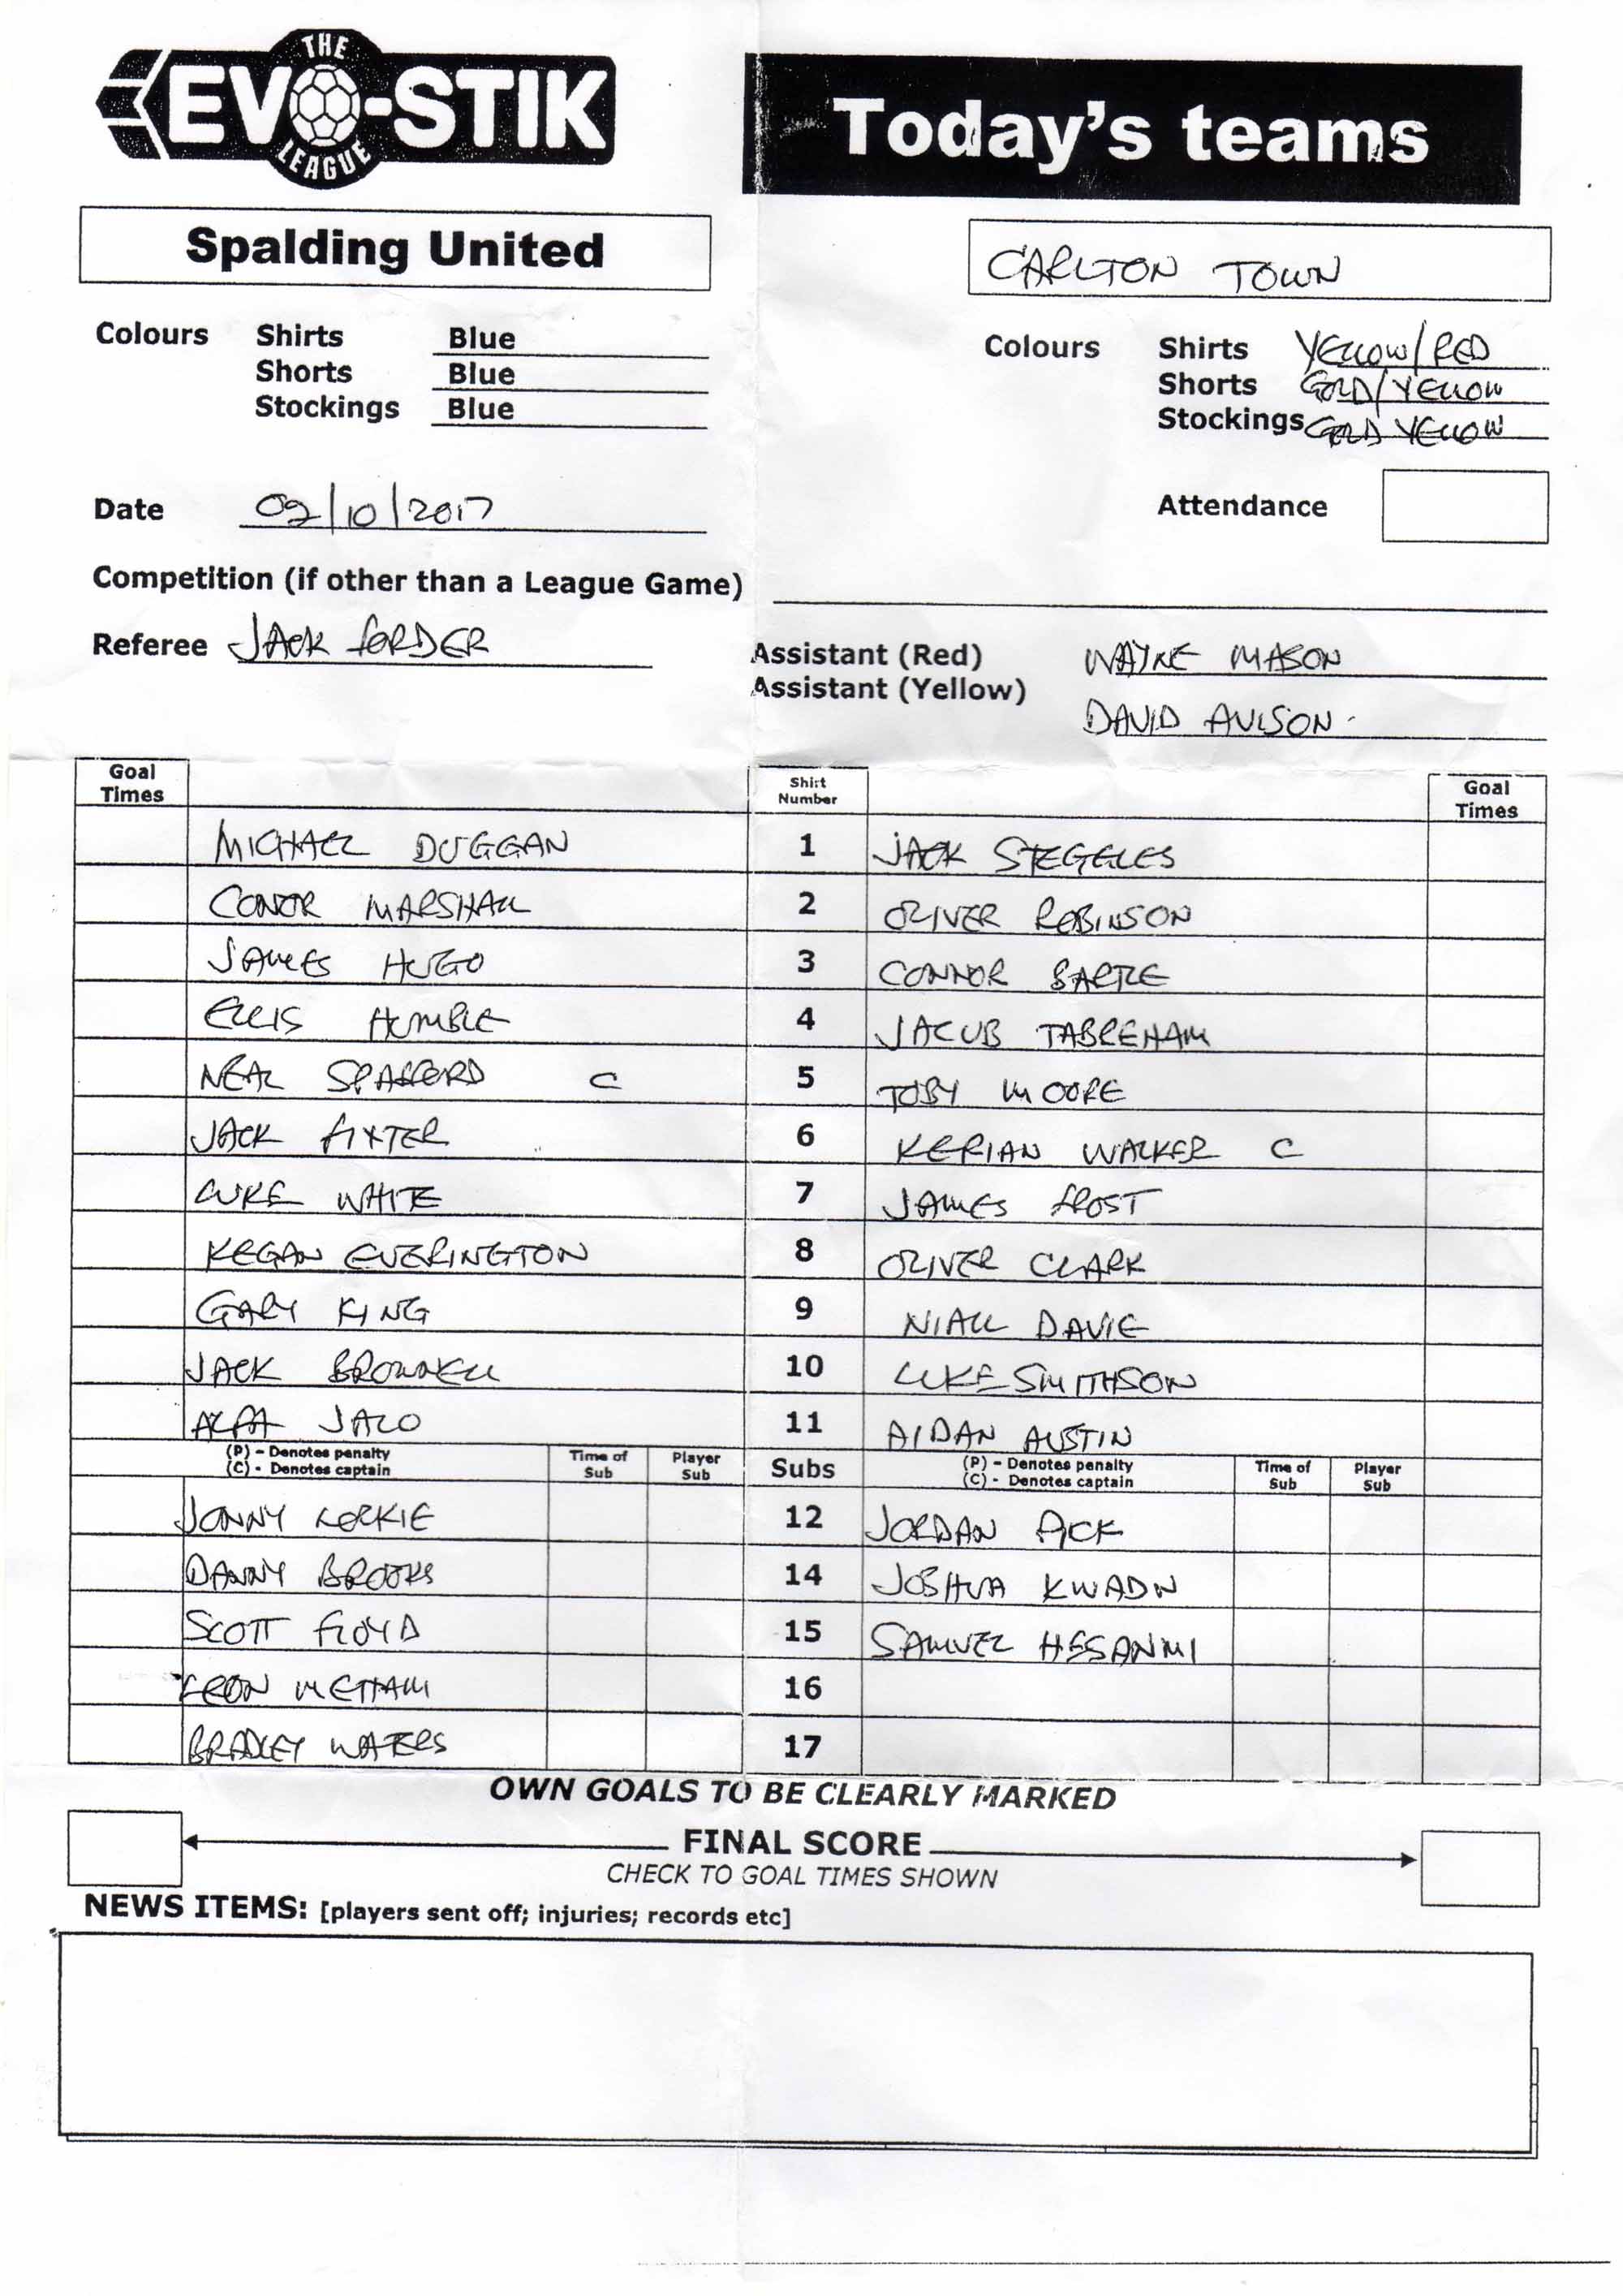 THE
EVO-STIK
LEAGUE
Today's teams
Spalding United
CARLTON TOWN
Colours Shirts Blue
Shorts Blue
Stockings Blue
Colours Shirts YELLOW/RED
Shorts GOLD/YELLOW
Stockings GOLD YELLOW
Date 02/10/2017
Attendance
Competition (if other than a League Game)
Referee JACK FORDER
Assistant (Red) WAYNE MASON
Assistant (Yellow) DAVID AVISON
Goal Times Shirt Number Goal Times
MICHAEL DUGGAN 1 JACK STEGGLES
CONOR MARSHALL 2 OLIVER ROBINSON
JAMES HUGO 3 CONNOR BARTLE
ELLIS HUMBLE 4 JACUB TABREHAM
NEAL SPAFFORD C 5 TOBY MOORE
JACK FIXTER 6 KERIAN WALKER C
LUKE WHITE 7 JAMES FROST
KEGAN EVERINGTON 8 OLIVER CLARK
GARY KING 9 NIALL DAVIE
JACK BROWNELL 10 LUKE SMITHSON
ALFA JALO 11 AIDAN AUSTIN
(P) - Denotes penalty Time of Sub Player Sub Subs (P) - Denotes penalty Time of Sub Player Sub
(C) - Denotes captain (C) - Denotes captain
JONNY LORKIE 12 JORDAN PICK
DANNY BROOKS 14 JOSHUA KWADN
SCOTT FLOYD 15 SAMUEL
LEON METTAM 16
BRADLEY WATERS 17
OWN GOALS TO BE CLEARLY MARKED
FINAL SCORE
CHECK TO GOAL TIMES SHOWN
NEWS ITEMS: [players sent off; injuries; records etc]